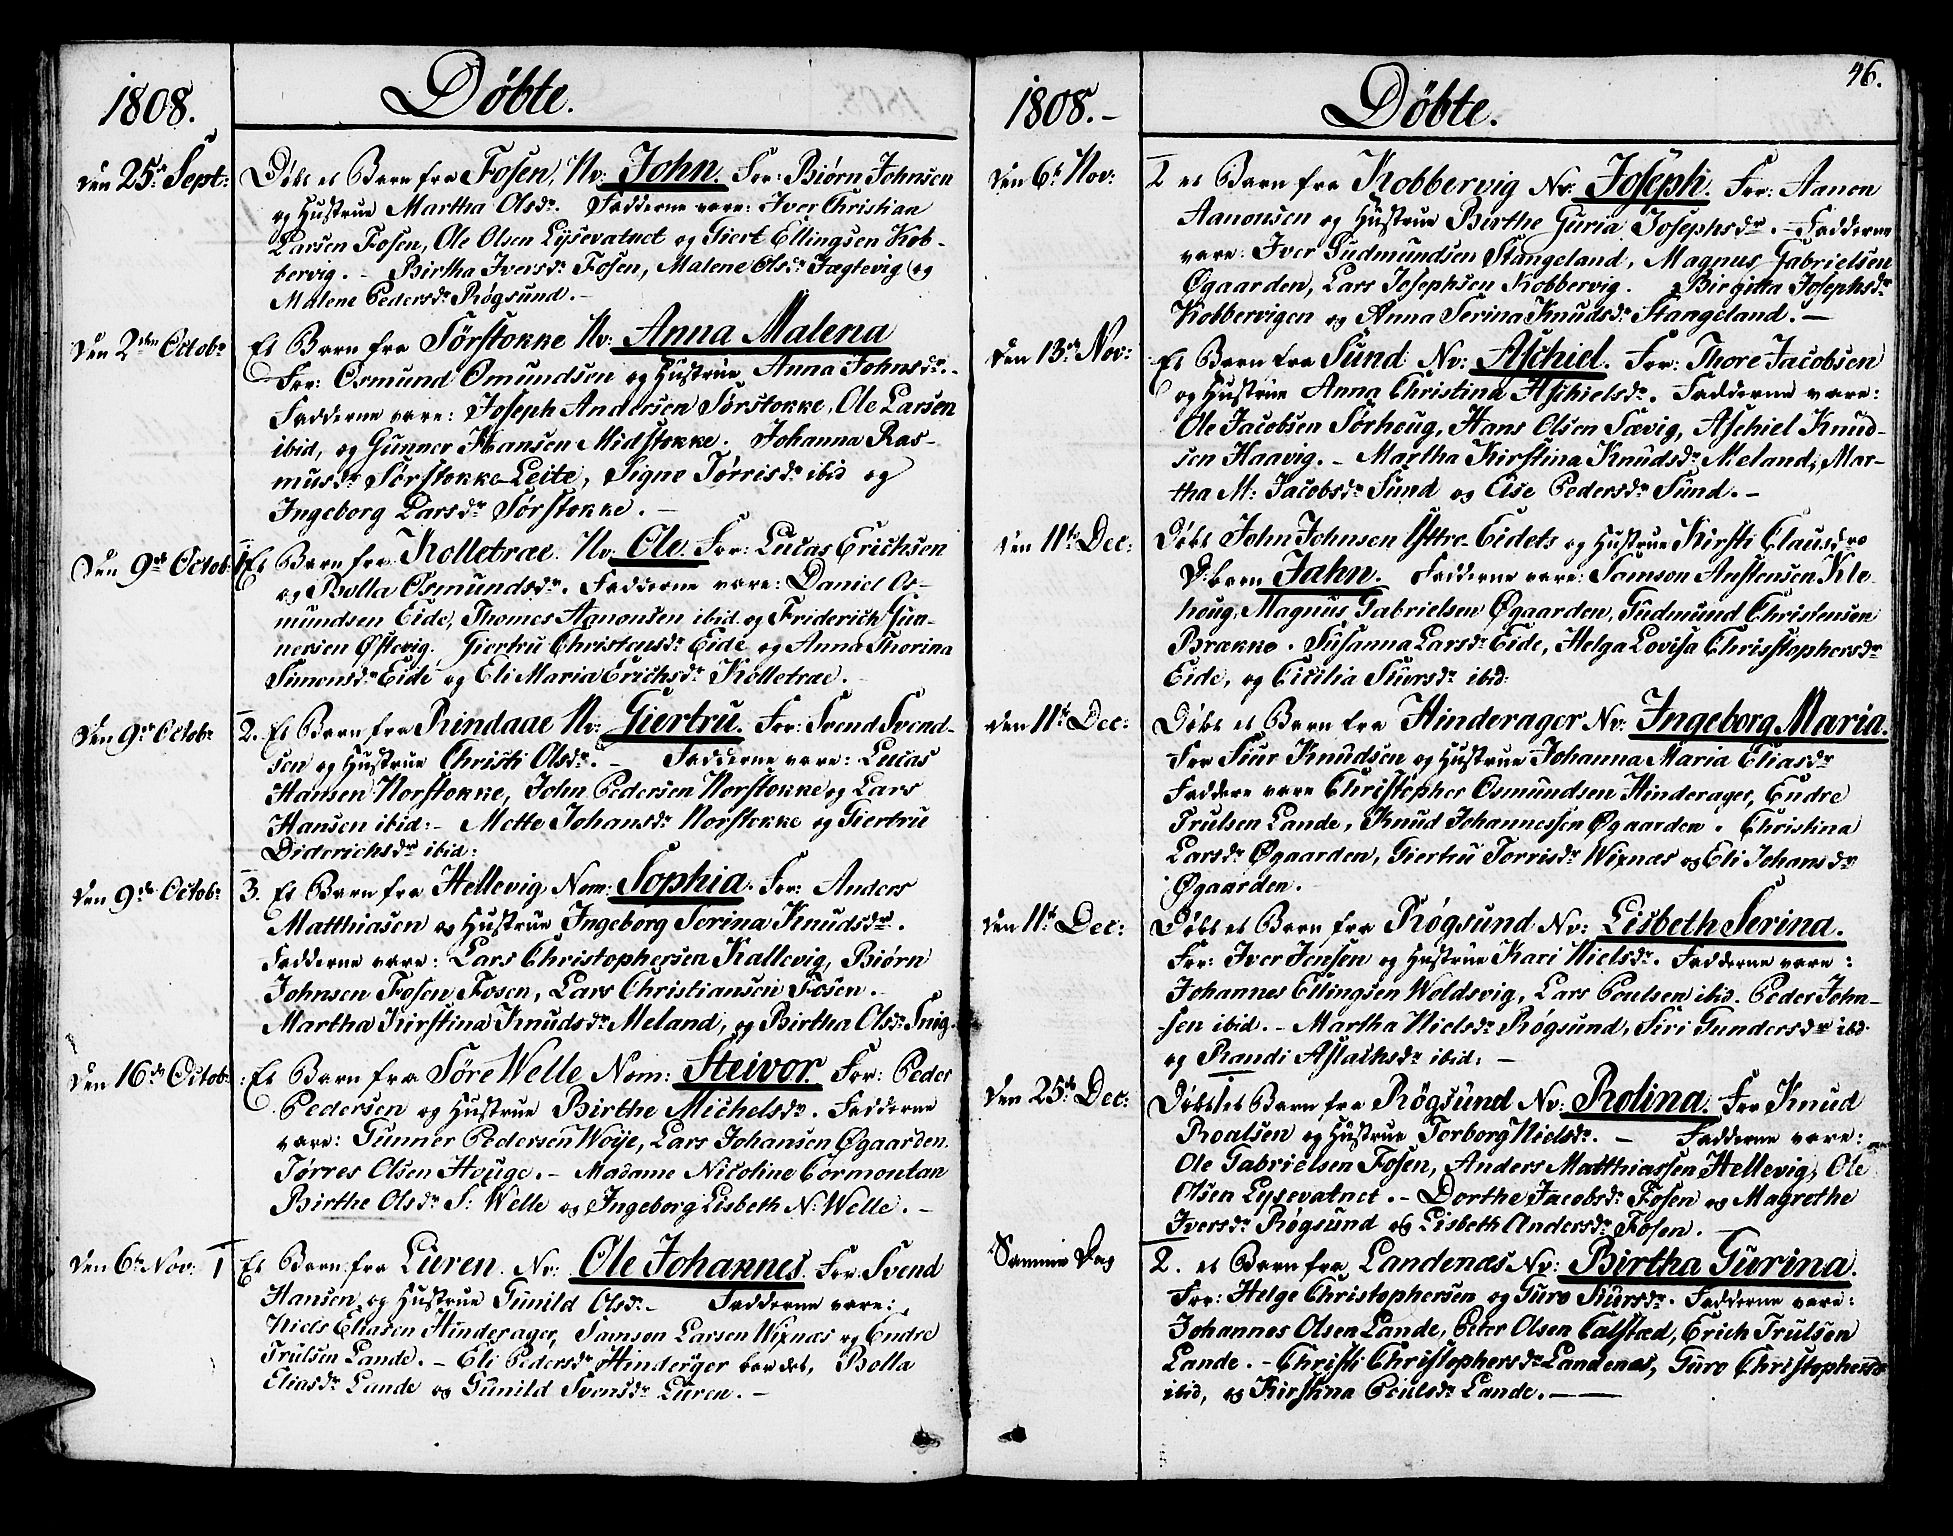 1808.
Döbte.
den 25de Sept:
Döbt et Barn fra Fosen, Nv: John. For: Biørn Johnsen
og Hustrue Martha Olsdr. Fadderne vare: Iver Christian
Larsen Fosen, Ole Olsen Lysevatnet og Giert Ellingsen Kob-
bervig. - Birtha Iversdr Fosen, Malene Olsdr Fægtevig og
Malene Pedersdr Røgsund. -
den 2den Octobr
Et Barn fra Sørstokke Nv: Anna Malena
For: Osmund Omundsen og Hustrue Anna Johnsdr. -
Fadderne vare: Joseph Andersen Sørstokke, Ole Larsen
ibid, og Gunner Hansen Midstokke. Johanna Ras-
musdr Sørstokke-Leite, Signe Tørrisdr ibid og
Ingeborg Larsdr Sørstokke. -
den 9de Octob: 1
Et Barn fra Kolletræe. Nv: Ole. For: Lucas Erichsen
og Bolla Osmundsdr. Fadderne vare: Daniel Os-
mundsen Eide, Thomes Aanonsen ibid og Friderich Gun-
nersen Østevig. Giertru Christensdr Eide og Anna Thorina
Simonsdr Eide og Eli Maria Erichsdr Kolletræe. -
den 9de Octobr
2. Et Barn fra Rindaae Nv: Giertru. For: Svend Svend-
sen og Hustrue Christi Olsdr. - Fadderne vare: Lucas
Hansen Norstokke, John Pedersen Norstokke og Lars
Hansen ibid: - Mette Johansdr Norstokke og Giertru
Diderichsdr ibid:
den 9de Octobr
3. Et Barn fra Hellevig Nom: Sophia. For: Anders
Matthiasen og Hustrue Ingeborg Serina Knudsdr.
Fadderne vare: Lars Christophersen Kallevig, Biørn
Johnsen Fosen Fosen, Lars Christiansen Fosen. -
Martha Kirstina Knudsdr Meland, og Birtha Olsdr Snig.
den 16de Octob:
Et Barn fra Søre Welle Nom: Steivor. For: Peder
Pedersen og Hustrue Birthe Michelsdr. Fadderne
vare: Gunner Pedersen Woije, Lars Johansen Øgaarden.
Tørres Olsen Houge. - Madame Nicoline Cormontan
Birthe Olsdr S: Welle og Ingeborg Lisbeth N: Welle. -
den 6te Nov: 1
Et Barn fra Liiren. Nv: Ole Johannes. For Svend
Hansen og Hustrue Gunild Olsdr - Fadderne vare:
Niels Eliasen Hinderager, Samson Larsen Wixnæs og Endre
Trulsen Lande. - Eli Pedersdr Hinderager bar det, Bolla
Eliasdr Lande og Gunild Svensdr Liiren. -
46.
1808. -
Döbte.
den 6te Nov:
1 et Barn fra Kobbervig Nv: Joseph. For: Aanon
Aanonsen og Hustrue Birthe Guria Josephsdr. - Fadderne
vare: Iver Gudmundsen Stangeland, Magnus Gabrielsen
Øgaarden, Lars Josephsen Kobbervig. Birgitta Josephsdr
Kobbervigen og Anna Serina Knudsdr Stangeland. -
den 13de Nov:
Et Barn fra Sund Nv: Aschiel. For: Thore Jacobsen
og Hustrue Anna Christina Aschielsdr. Fadderne vare:
Ole Jacobsen Sørhoug, Hans Olsen Sævig, Aschiel Knud-
sen Haavig. - Martha Kirstina Knudsdr Meland, Mar-
tha M: Jacobsdr Sund og Else Pedersdr Sund. -
den 11te Dec:
Döbt John Johnsen Yttre-Eidets og Hustrue Kirsti Clausdrs
D:barn Jahn. Fadderne vare: Samson Austensen Kle-
houg, Magnus Gabrielsen Øgaarden, Gudmund Christensen
Brække. Susanna Larsdr Eide, Helga Lovisa Christophersdr
Eide, og Cicilia Siursdr ibid:
den 11te Dec:
Döbt et Barn fra Hinderager Nv: Ingeborg Maria.
For Siur Knudsen og Hustrue Johanna Maria Eliasdr
Faddere vare Christopher Osmundsen Hinderager, Endre
Trulsen Lande, Knud Johannessen Øgaarden. Christina
Larsdr Øgaarden, Giertru Torrisdr Wixnæs og Eli Johansdr
Øgaarden. -
den 11te Dec:
Döbt et Barn fra Røgsund Nv: Lisbeth Serina.
For: Iver Jensen og Hustrue Kari Nielsdr. Fadderne vare:
Johannes Ellingsen Woldsvig, Lars Poulsen ibid. Peder John-
sen ibid. - Martha Nielsdr Røgsund, Siri Gundersdr ibd
og Randi Aslachsdr ibid: -
den 25de Dec:
Döbt 1 et Barn fra Røgsund Nv: Rolina. For Knud
Roalsen og Hustrue Torborg Nielsdr. - Fadderne vare:
Ole Gabrielsen Fosen, Anders Matthiassen Hellevig, Ole
Olsen Lysevatnet. - Dorthe Jacobsdr Fosen og Magrethe
Iversdr Røgsund og Lisbeth Andersdr Fosen.
Samme Dag
2. et Barn fra Landenæs Nv: Birtha Gurina.
For: Helge Christophersen og Guro Siursdr. Fadderne vare:
Johannes Olsen Lande, Peter Olsen Calstæd, Erich Trulsen
Lande. - Christi Christophersdr Landenæs, Guro Christophersdr
ibid, og Kirstina Poulsdr Lande. -